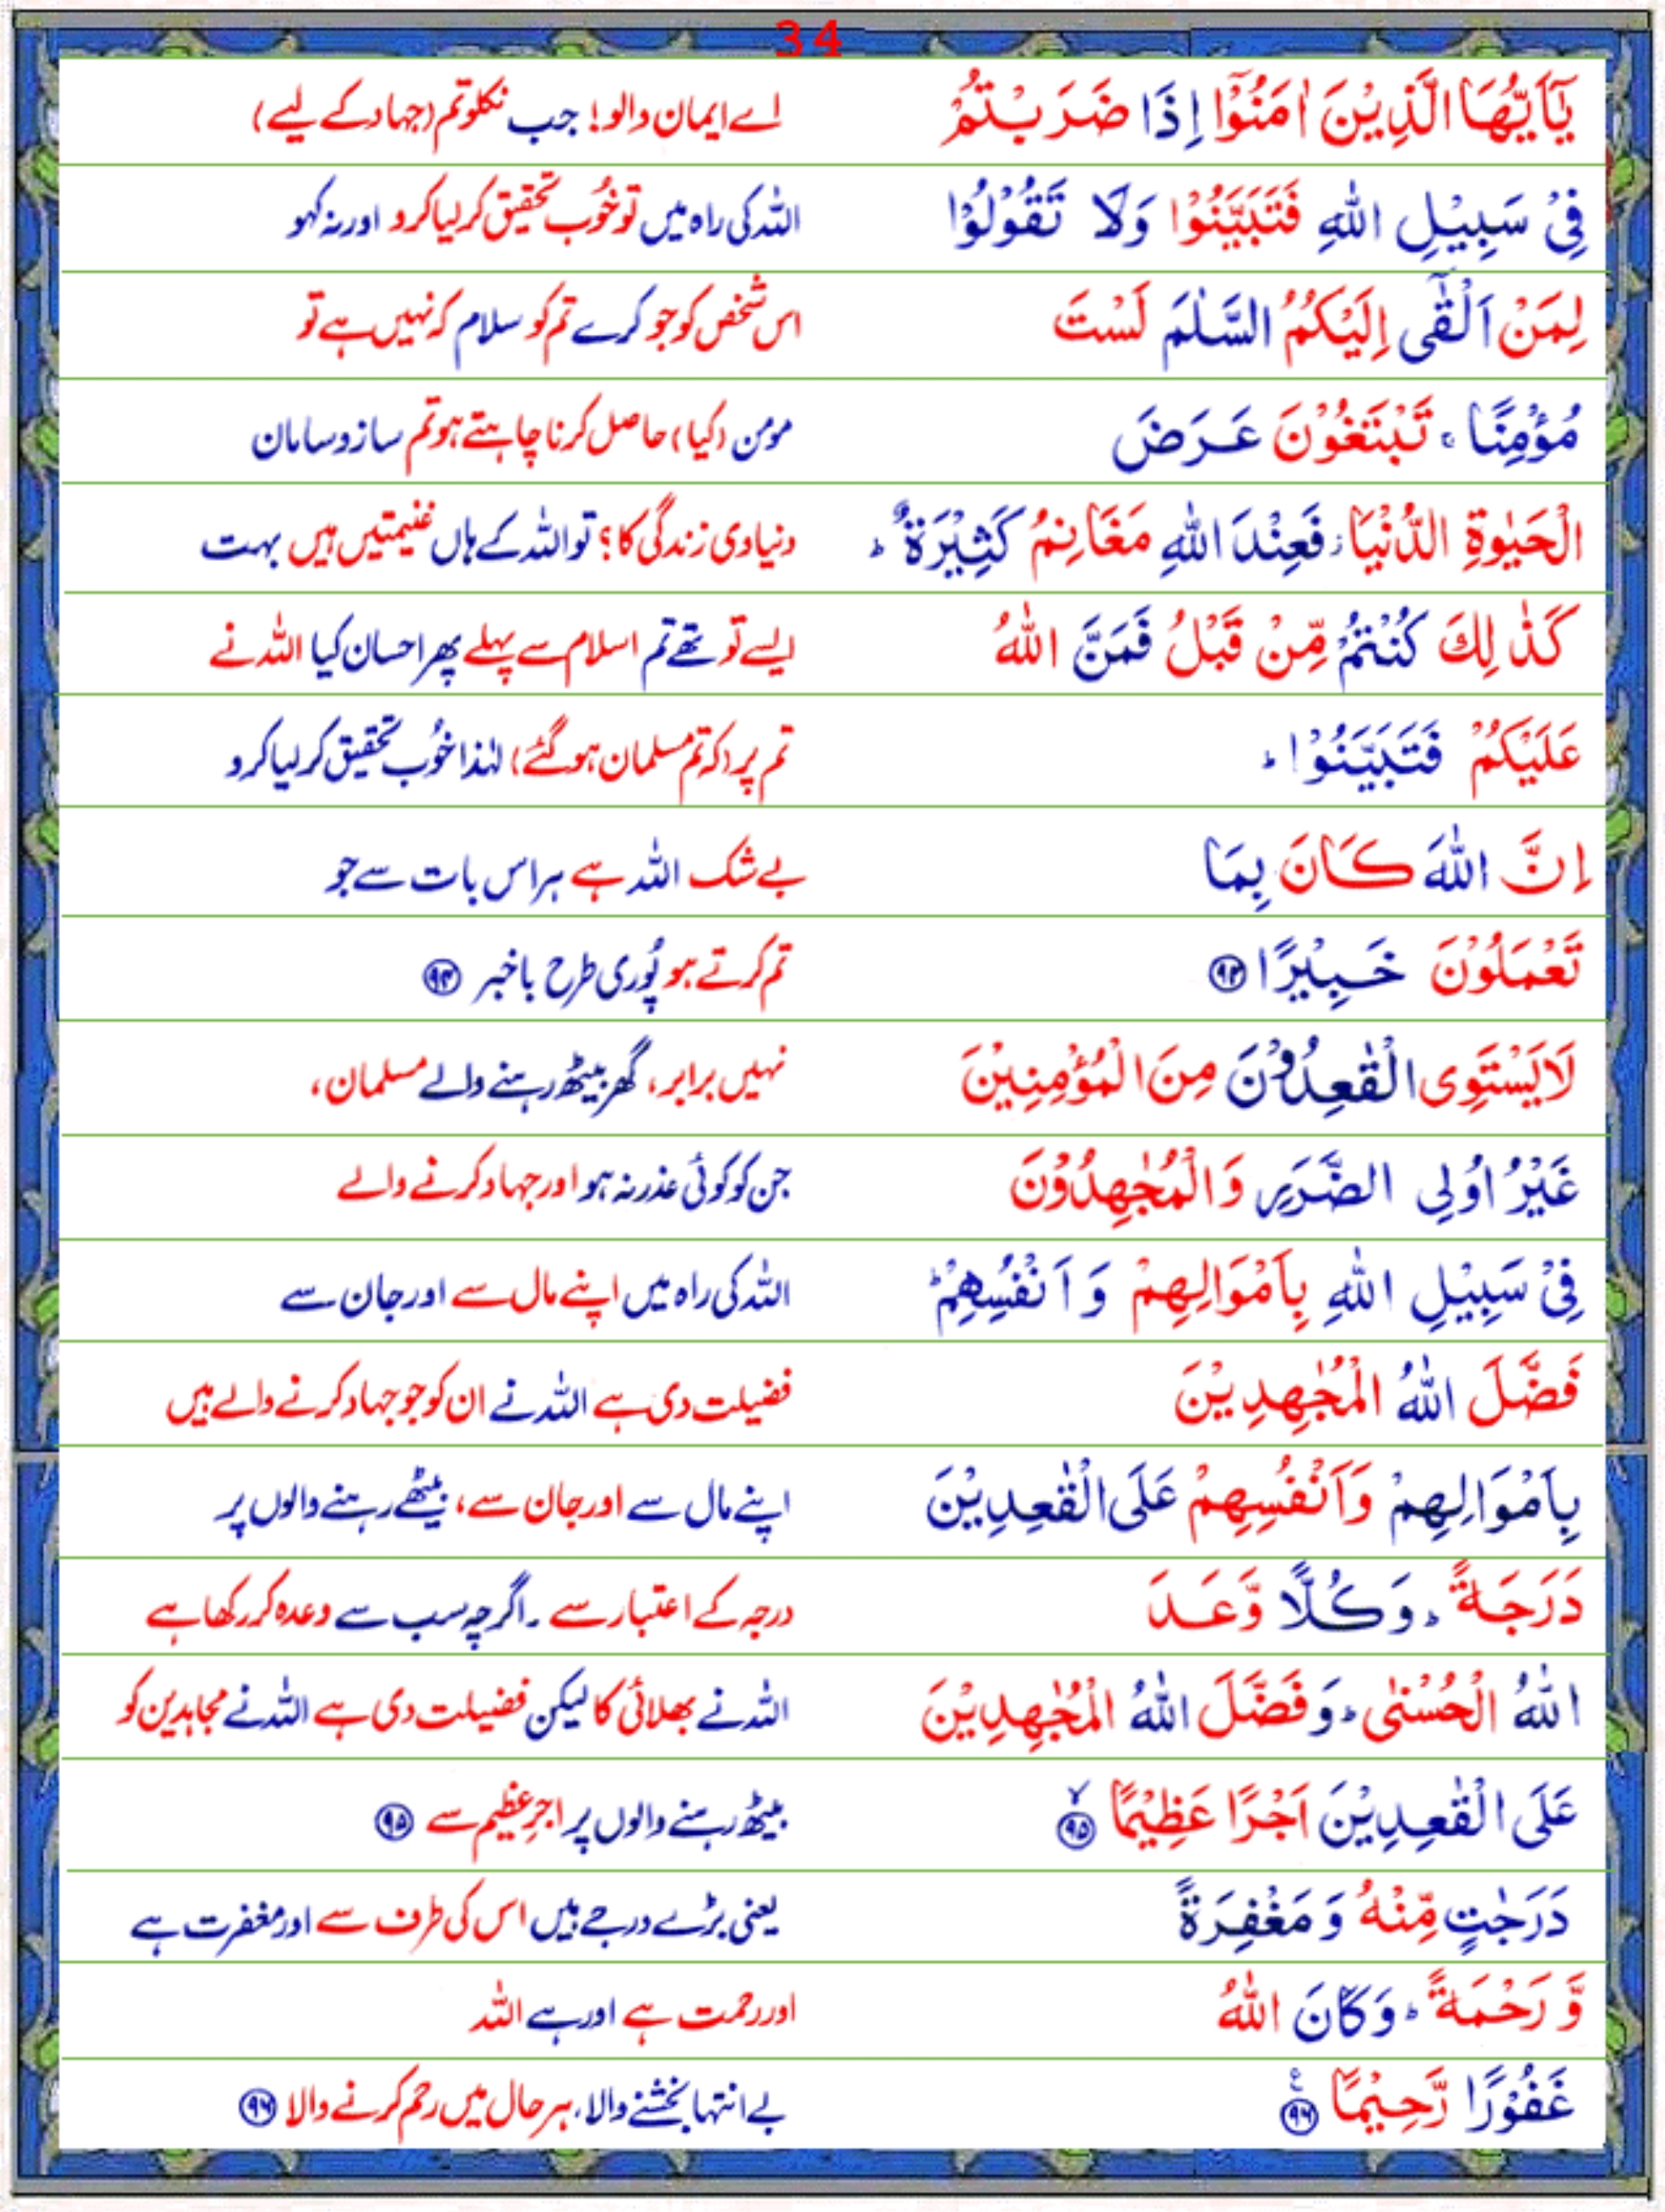 34
يٰٓاَيُّهَا الَّذِيْنَ اٰمَنُوْٓا اِذَا ضَرَبْتُمْ اے ایمان والو! جب نکلو تم (جہاد کے لیے)
فِىْ سَبِيْلِ اللّٰهِ فَتَبَيَّنُوْا وَلَا تَقُوْلُوْا اللہ کی راہ میں تو خُوب تحقیق کر لیا کرو اور نہ کہو
لِمَنْ اَلْقٰٓى اِلَيْكُمُ السَّلٰمَ لَسْتَ اس شخص کو جو کرے تم کو سلام کہ نہیں ہے تو
مُؤْمِنًا ۚ تَبْتَغُوْنَ عَرَضَ مومن (کیا) حاصل کرنا چاہتے ہو تم ساز و سامان
الْحَيٰوةِ الدُّنْيَا ز فَعِنْدَ اللّٰهِ مَغَانِمُ كَثِيْرَةٌ ؕ دنیاوی زندگی کا؟ تو اللہ کے ہاں غنیمتیں ہیں بہت
كَذٰلِكَ كُنْتُمْ مِّنْ قَبْلُ فَمَنَّ اللّٰهُ ایسے تو تھے تم اسلام سے پہلے پھر احسان کیا اللہ نے
عَلَيْكُمْ فَتَبَيَّنُوْا ؕ تم پر (کہ تم مسلمان ہو گئے) لہٰذا خُوب تحقیق کر لیا کرو
اِنَّ اللّٰهَ كَانَ بِمَا بے شک اللہ ہے ہر اس بات سے جو
تَعْمَلُوْنَ خَبِيْرًا ۹۴ تم کرتے ہو پُوری طرح باخبر ۹۴
لَا يَسْتَوِى الْقٰعِدُوْنَ مِنَ الْمُؤْمِنِيْنَ نہیں برابر، گھر بیٹھ رہنے والے مسلمان،
غَيْرُ اُولِى الضَّرَرِ وَالْمُجٰهِدُوْنَ جن کو کوئی عذر نہ ہو اور جہاد کرنے والے
فِىْ سَبِيْلِ اللّٰهِ بِاَمْوَالِهِمْ وَاَنْفُسِهِمْ ؕ اللہ کی راہ میں اپنے مال سے اور جان سے
فَضَّلَ اللّٰهُ الْمُجٰهِدِيْنَ فضیلت دی ہے اللہ نے ان کو جو جہاد کرنے والے ہیں
بِاَمْوَالِهِمْ وَاَنْفُسِهِمْ عَلَى الْقٰعِدِيْنَ اپنے مال سے اور جان سے، بیٹھے رہنے والوں پر
دَرَجَةً ؕ وَكُلًّا وَّعَدَ درجہ کے اعتبار سے ۔ اگرچہ سب سے وعدہ کر رکھا ہے
اللّٰهُ الْحُسْنٰى ؕ وَفَضَّلَ اللّٰهُ الْمُجٰهِدِيْنَ اللہ نے بھلائی کا لیکن فضیلت دی ہے اللہ نے مجاہدین کو
عَلَى الْقٰعِدِيْنَ اَجْرًا عَظِيْمًا ۙ ۹۵ بیٹھ رہنے والوں پر اجرِ عظیم سے ۹۵
دَرَجٰتٍ مِّنْهُ وَمَغْفِرَةً یعنی بڑے درجے ہیں اس کی طرف سے اور مغفرت ہے
وَّرَحْمَةً ؕ وَكَانَ اللّٰهُ اور رحمت ہے اور ہے اللہ
غَفُوْرًا رَّحِيْمًا ۹۶ بے انتہا بخشنے والا، ہر حال میں رحم کرنے والا ۹۶